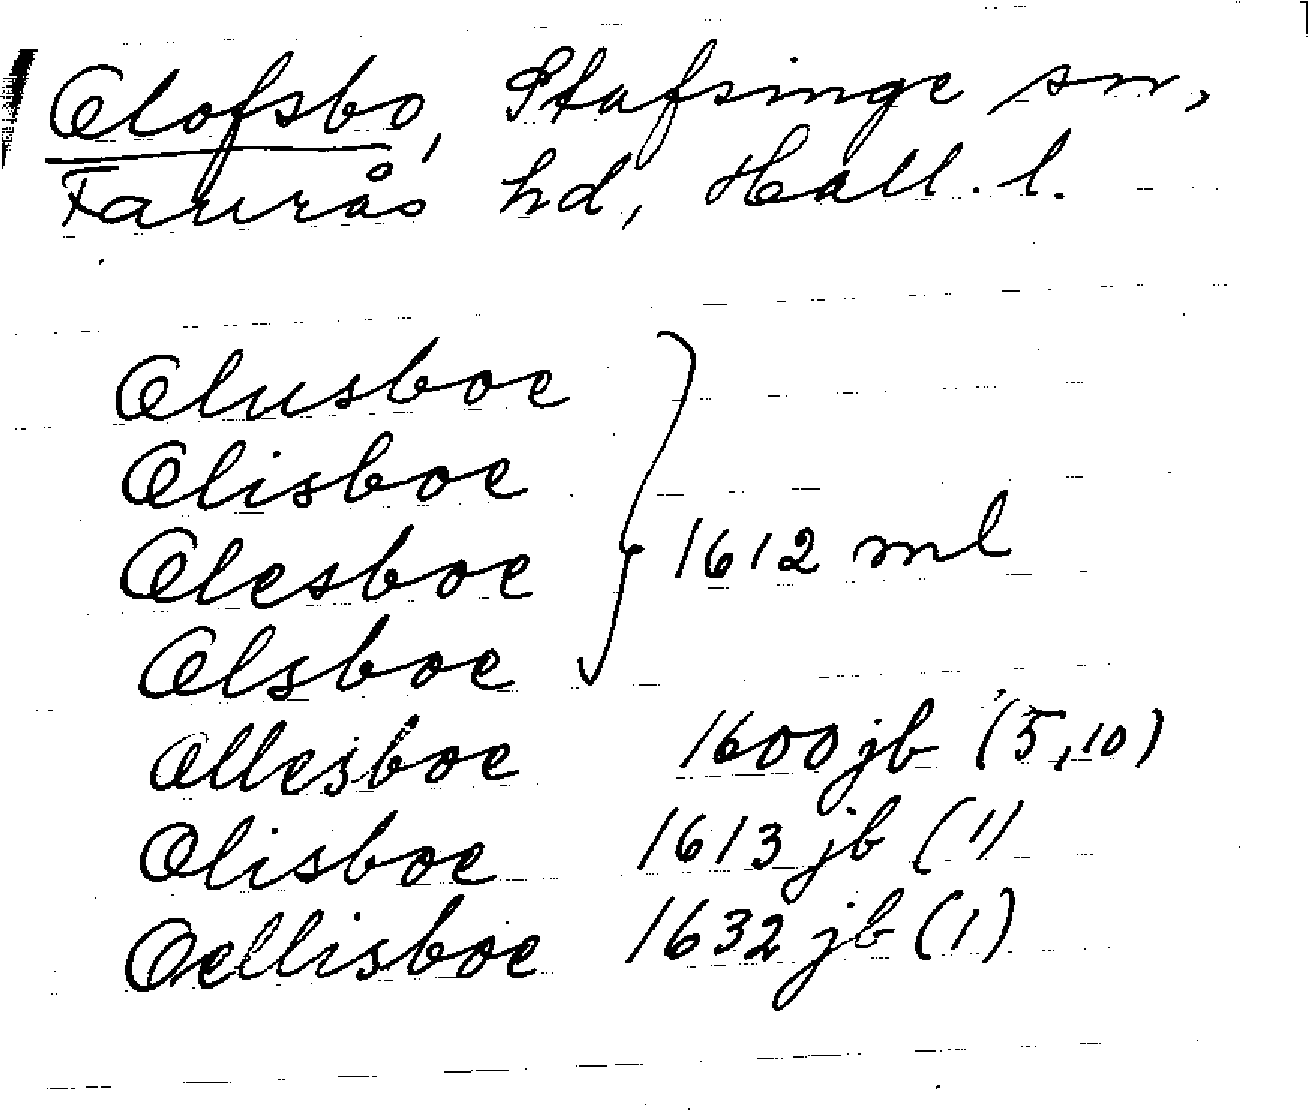 Olofsbo, Stafsinge sn,
Faurås hd, Hall. l.
Olusboe
Olisboe
Olesboe 1612 ml
Olsboe
Ollesboe 1600 jb (5,10)
Olisboe 1613 jb (1)
Oellisboe 1632 jb (1)